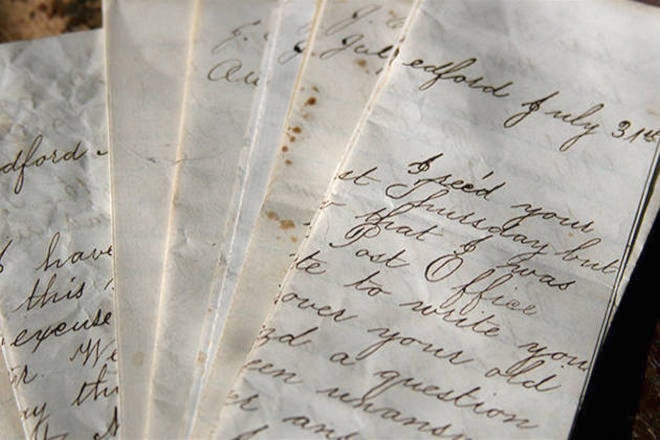 dford
I have
this
excuse
r. We
ay thi
J.
Au
J.
Jul
edford July 31st
I rec'd your
st Thursday but
that I was
Post Office
te to write you
over your old
nd a question
een unansw
er an